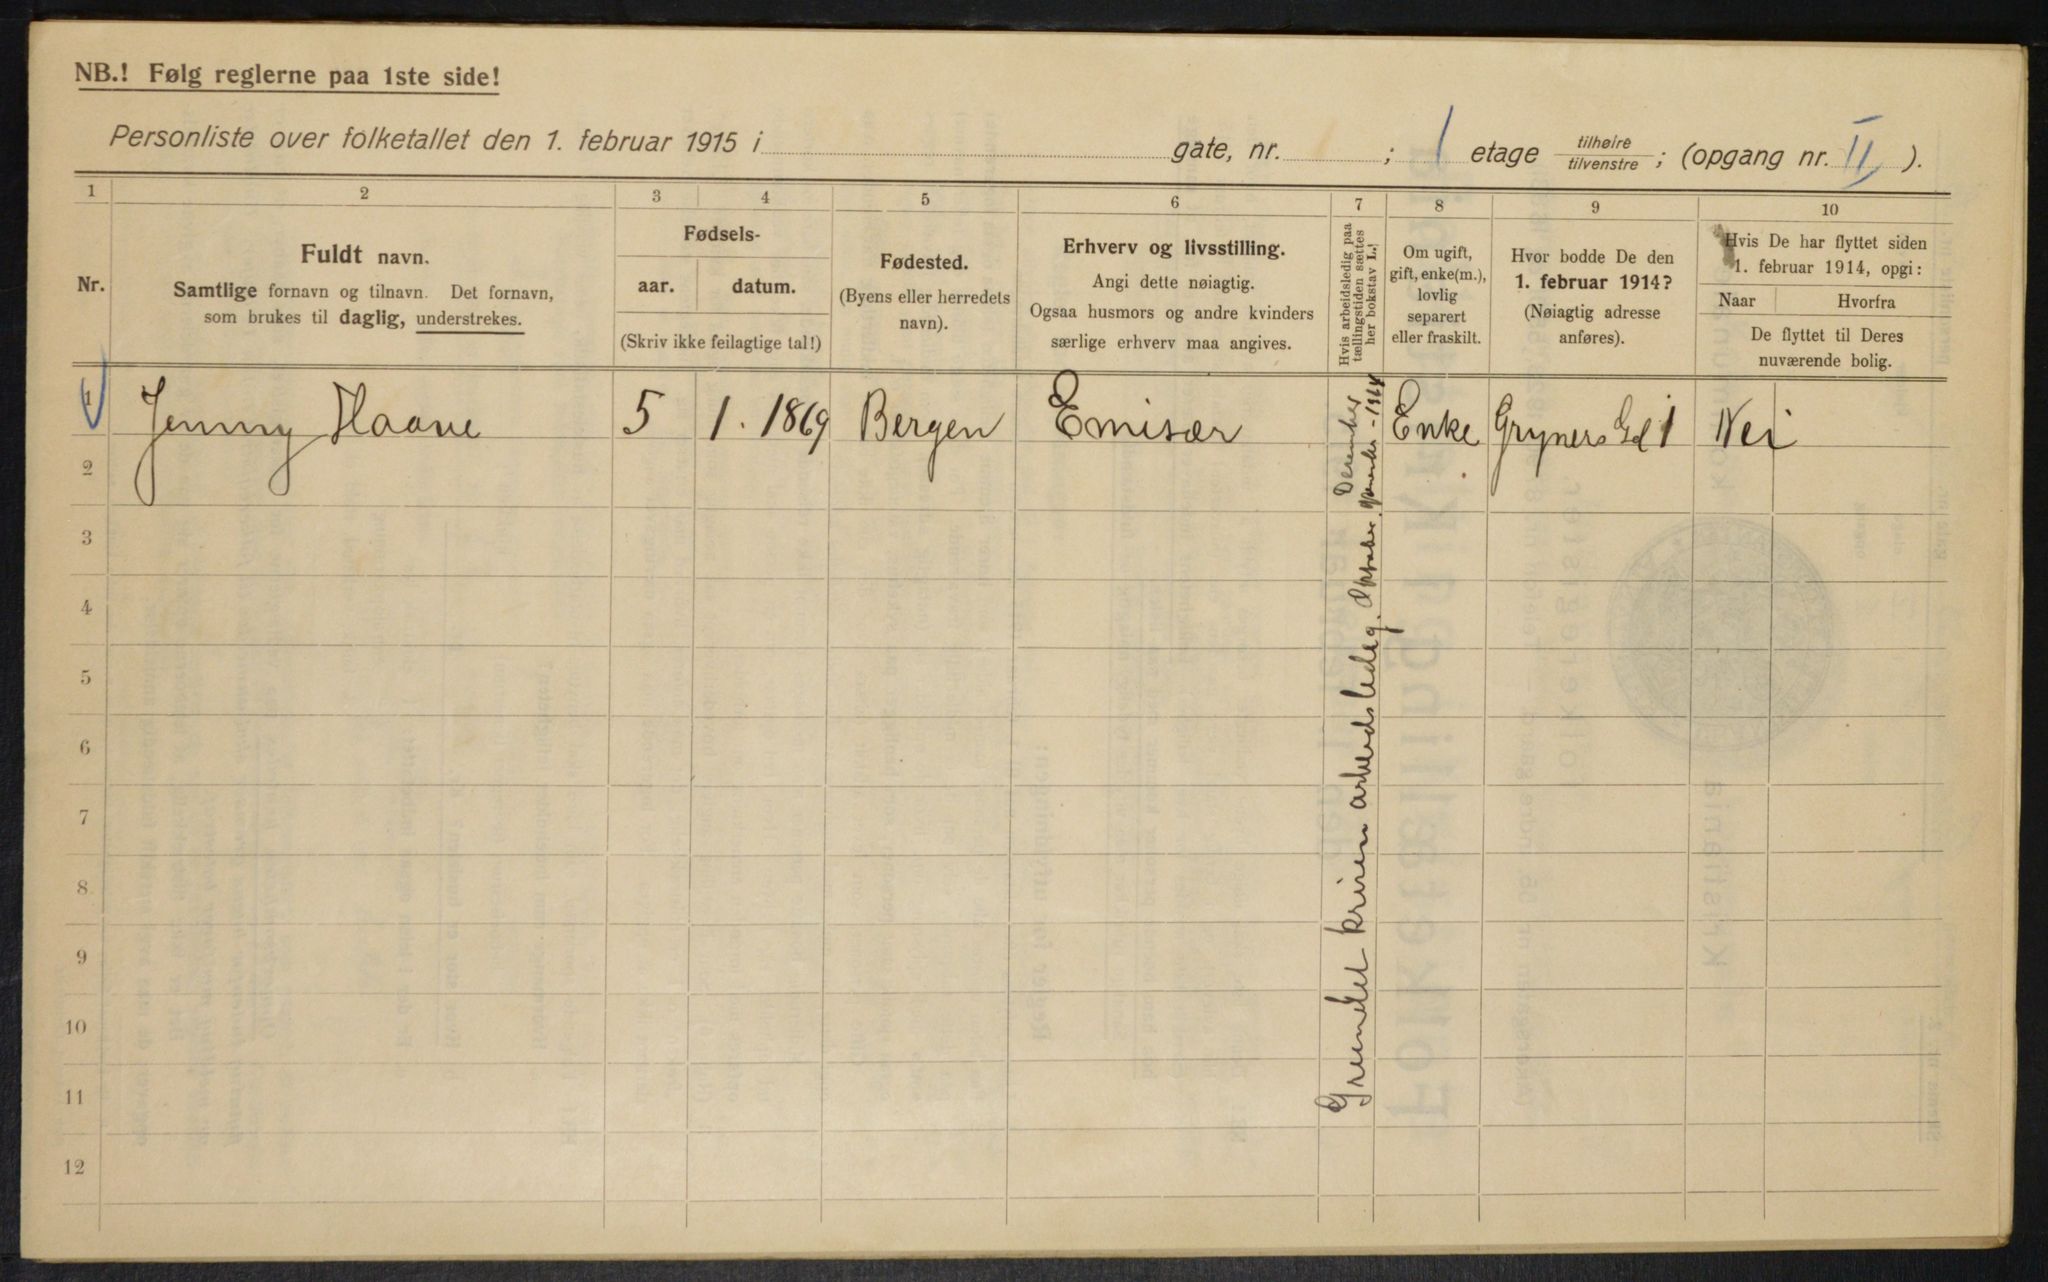 NB.! Følg reglerne paa 1ste side!
Personliste over folketallet den 1. februar 1915 i gate, nr. ; 1 etage tilhøire tilvenstre ; (opgang nr. II ).
1 2 3 4 5 6 7 8 9 10
Nr.
Fuldt navn.
Samtlige fornavn og tilnavn. Det fornavn,
som brukes til daglig, understrekes.
Fødsels-
aar. datum.
(Skriv ikke feilagtige tal!)
Fødested.
(Byens eller herredets
navn).
Erhverv og livsstilling.
Angi dette nøiagtig.
Ogsaa husmors og andre kvinders
særlige erhverv maa angives.
Hvis arbeidsledig paa
tællingstiden sættes
her bokstav L.!
Om ugift,
gift, enke(m.),
lovlig
separert
eller fraskilt.
Hvor bodde De den
1. februar 1914?
(Nøiagtig adresse
anføres).
Hvis De har flyttet siden
1. februar 1914, opgi:
Naar Hvorfra
De flyttet til Deres
nuværende bolig.
1 Jenny Haave 5 1. 1869 Bergen Emisær Enke Gryners Gd 1 Nei
Grundet krisen arbeidsledig. Oktober, November
December - 1914
2
3
4
5
6
7
8
9
10
11
12